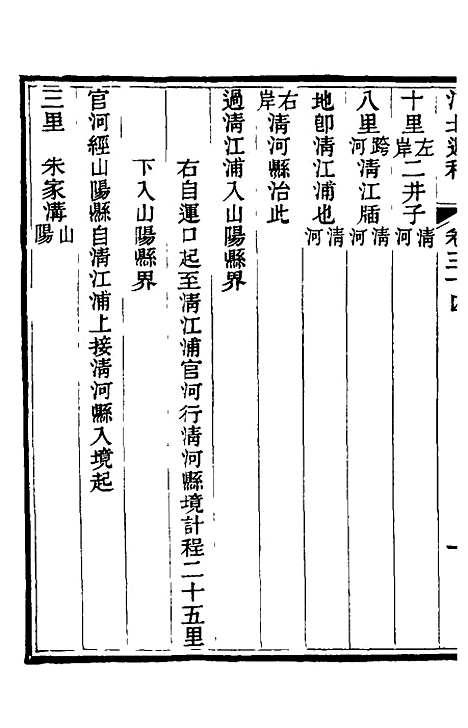 十里 左岸 二井子 清河
八里 跨河 清江牐 清河
地卽清江浦也 清河
右岸 清河縣治此
過清江浦入山陽縣界
右自運口起至清江浦官河行清河縣境計程二十五里
下入山陽縣界
官河經山陽縣自清江浦上接清河縣入境起
三里 朱家溝 山陽